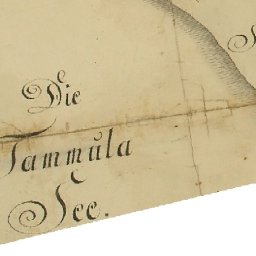 Die
Tammŭla
See.